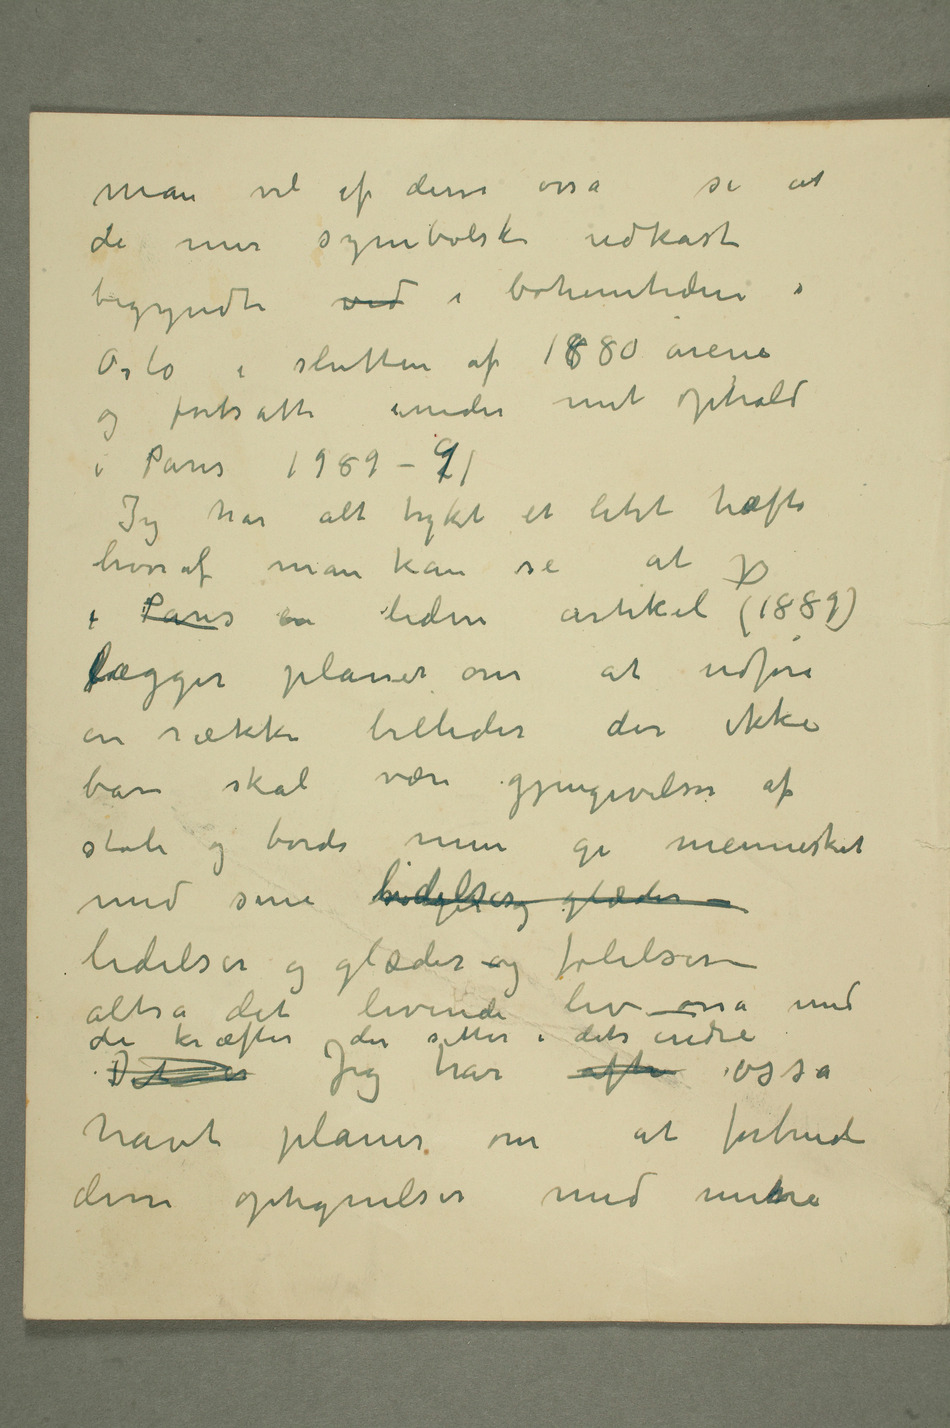 man vil af disse osså se at
de mer symbolske udkast
begyndte ved i bohemtiden i
Oslo i slutten af 1880 årene
og fortsatte under mit ophold
i Paris 1989 – 91
Jeg har alt trykt et litet hæfte
hvoraf man kan se at jeg
i Paris en liden artikel (1889)
lægger planer om at udføre
en række billeder der ikke
bare skal være gjengivelser af
stole og borde men gi mennesket
med sine lidelser og glæder –
lidelser og glæder og følelser –
altså det levende liv – osså med
de kræfter der sitter i dets indre
Det er Jeg har ofte osså
havt planer om at forbinde
disse optegnelser med mine